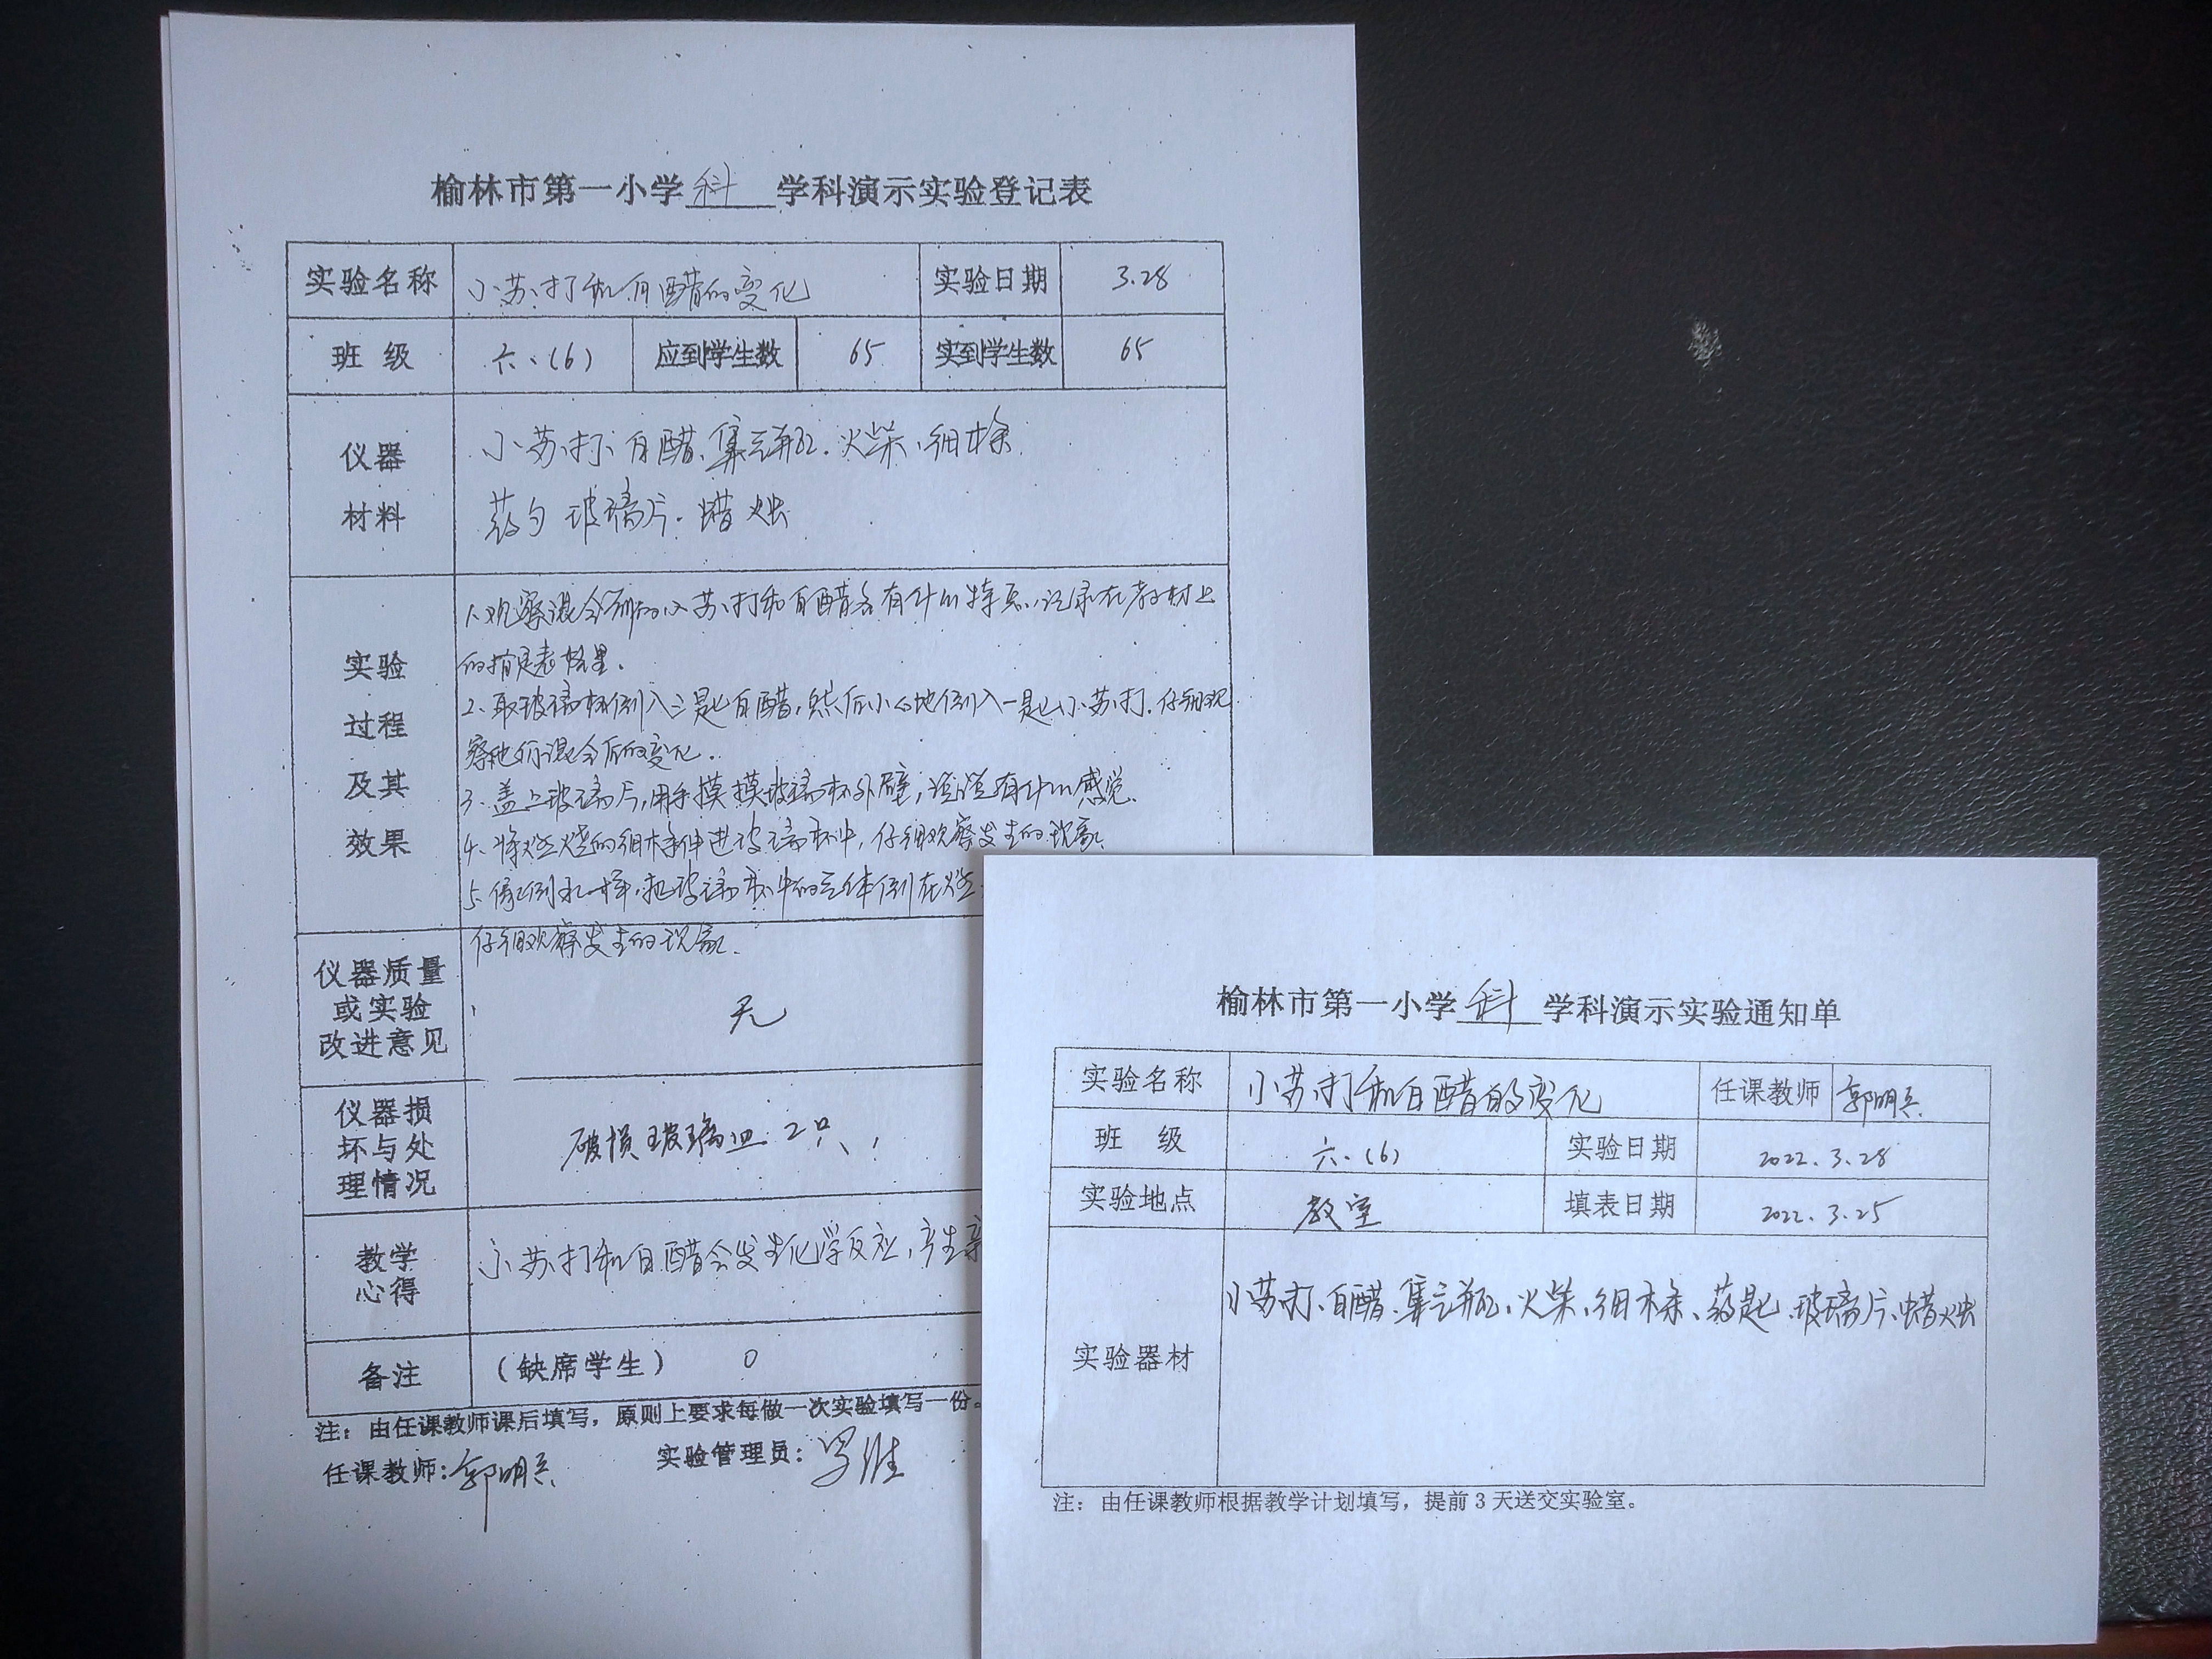 榆林市第一小学 科 学科演示实验登记表
实验名称 小苏打和白醋的变化 实验日期 3.28
班 级 六、(6) 应到学生数 65 实到学生数 65
仪器 小苏打、白醋、集气瓶、火柴、细木条
材料 药勺 玻璃片、蜡烛
1、观察混合前的小苏打和白醋各有什么特点,记录在教材上
的指定表格里。
实验
2、取玻璃杯倒入三匙白醋,然后小心地倒入一匙小苏打.仔细观
过程
察他们混合后的变化。
及其
3、盖上玻璃片,用手摸摸玻璃杯外壁,说说有什么感觉.
效果
4、将燃烧的细木条伸进玻璃杯中,仔细观察发生的现象.
5、像倒水一样,把玻璃杯中的气体倒在燃
仔细观察发生的现象.
仪器质量
或实验 无
改进意见
仪器损
坏与处 破损玻璃皿2只
理情况
教学 小苏打和白醋会发生化学反应,产生
心得
备注 (缺席学生) 0
注:由任课教师课后填写,原则上要求每做一次实验填写一份。
任课教师: 郭明 实验管理员:
榆林市第一小学 科 学科演示实验通知单
实验名称 小苏打和白醋的变化 任课教师 郭明
班 级 六、(6) 实验日期 2022.3.28
实验地点 教室 填表日期 2022.3.25
小苏打、白醋、集气瓶、火柴、细木条、药匙、玻璃片、蜡烛
实验器材
注:由任课教师根据教学计划填写,提前3天送交实验室。